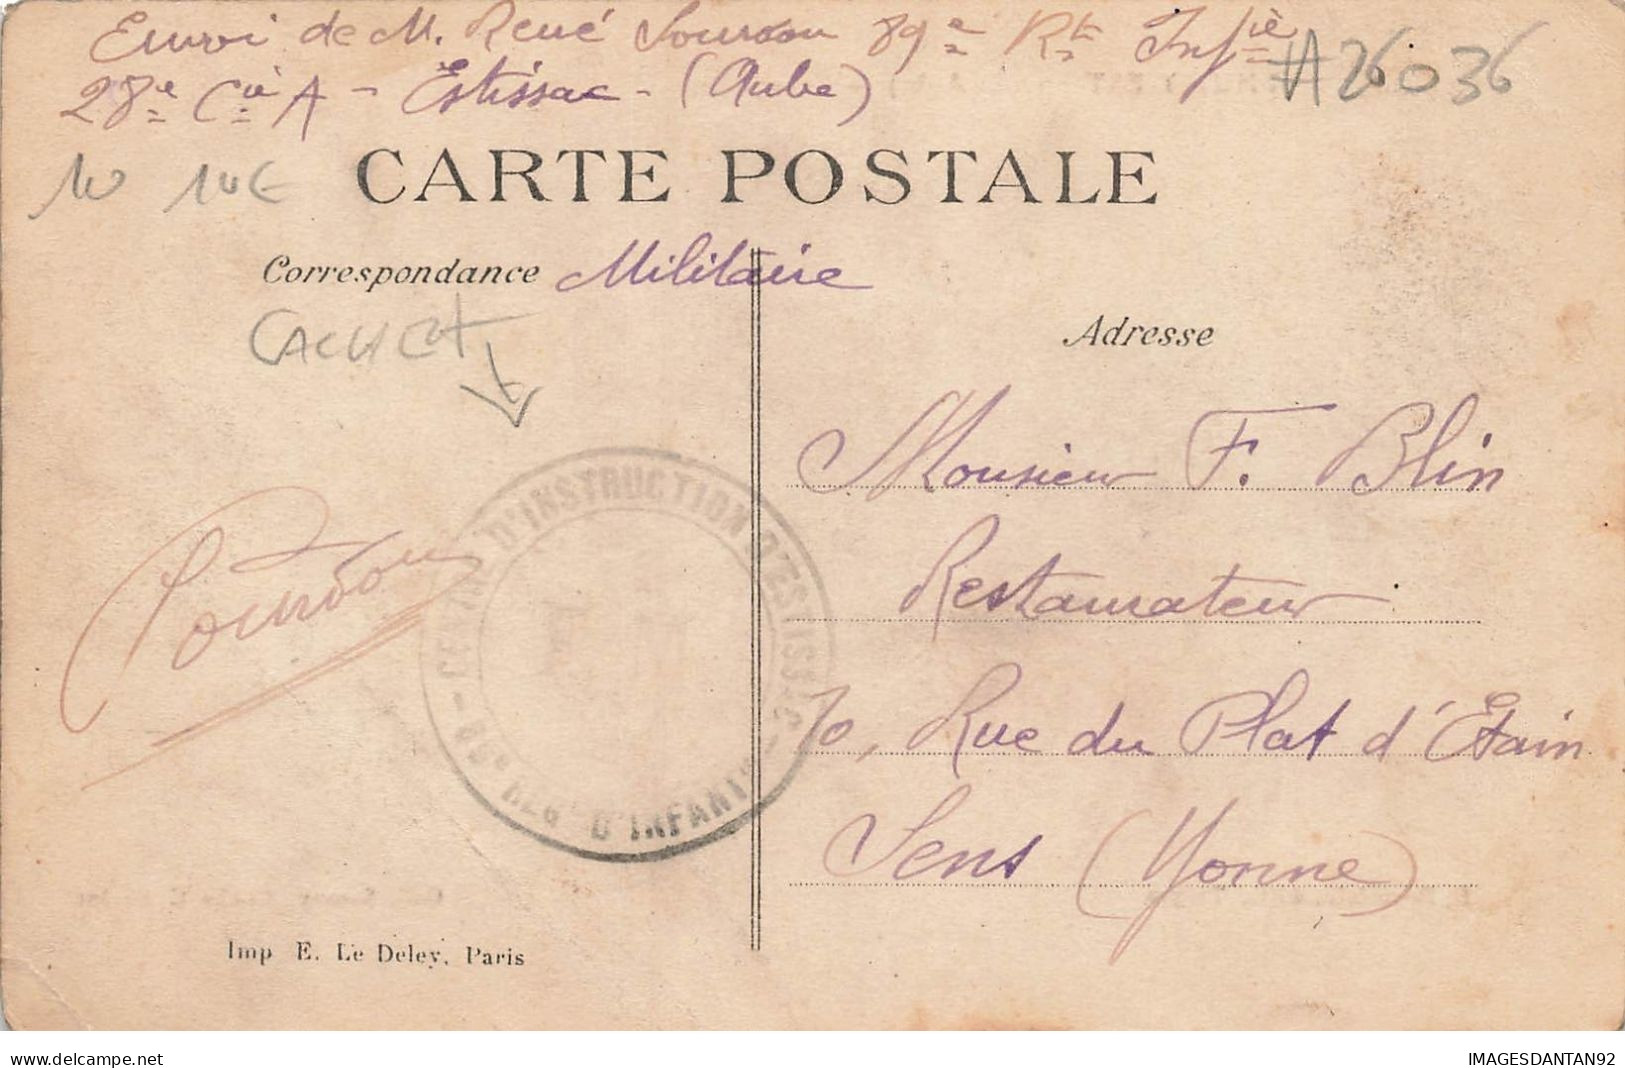 Envoi de M. René Sourdou 89e Rt Infie
#26036
28e Cie A - Estissac - (Aube)
10 10€
CARTE POSTALE
Correspondance Militaire
CACHET
Adresse
Monsieur F. Blin
Restaurateur
70, Rue du Plat d'Etain
Sens (Yonne)
D'INSTRUCTION D'ESTISSAC
REGt D'INFANIE
Imp E. Le Deley, Paris
delcampe.net
IMAGESDANTAN92